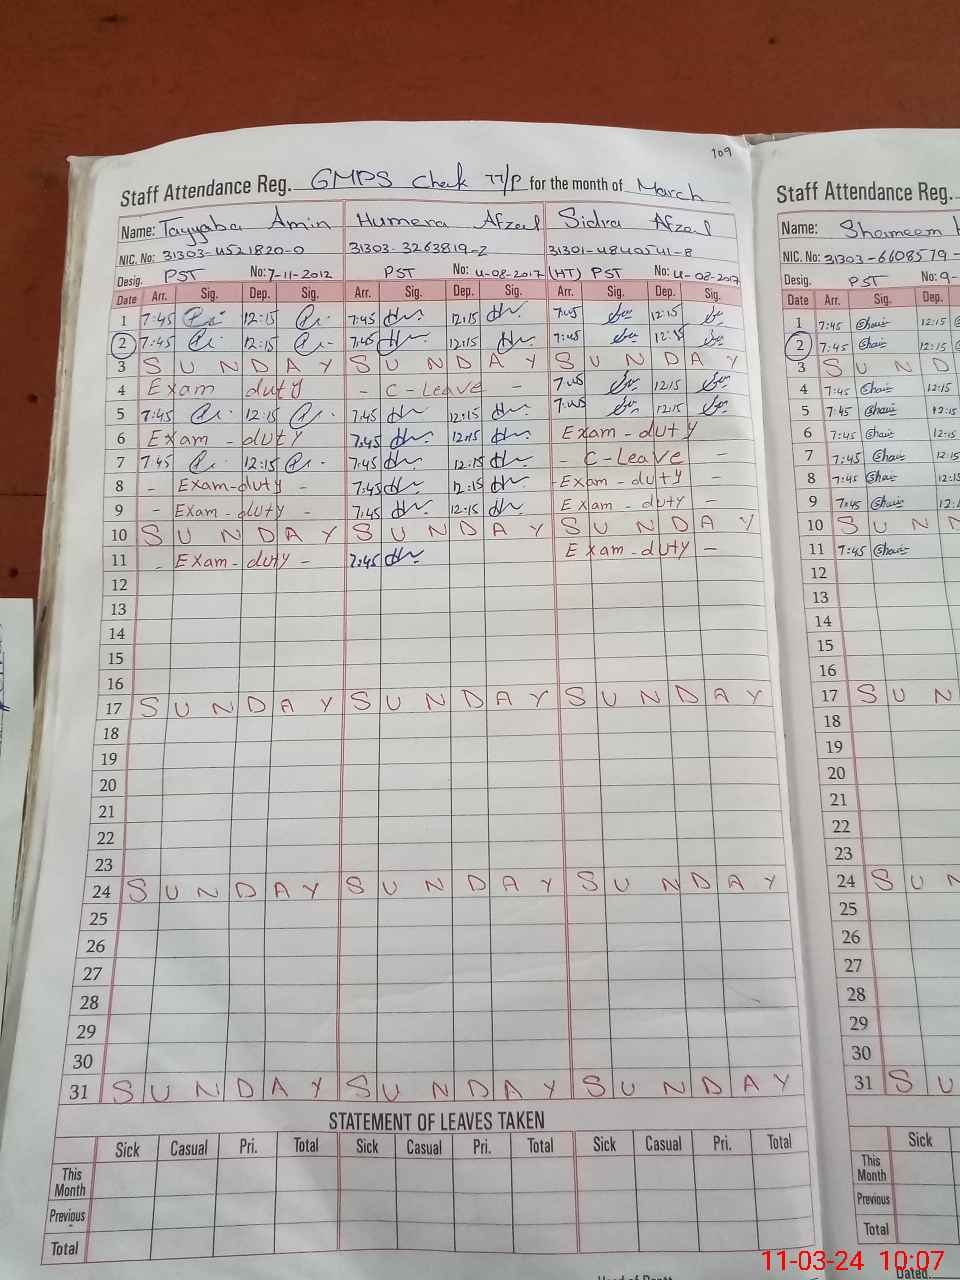 109
Staff Attendance Reg. GMPS Chack 77/P for the month of March
Name: Tayyaba Amin Humera Afzal Sidra Afzal
NIC. No: 31303-4521820-0 31303-3263819-2 31301-4840541-8
Desig. PST No: 7-11-2012 PST No: 4-08-2017 (HT) PST No: 4-08-2017
Date Arr. Sig. Dep. Sig. Arr. Sig. Dep. Sig. Arr. Sig. Dep. Sig.
1 7:45 12:15 7:45 12:15 7:45 12:15
2 7:45 12:15 7:45 12:15 7:45 12:15
3 S U N D A Y S U N D A Y S U N D A Y
4 Exam duty - C-Leave - 7:45 12:15
5 7:45 12:15 7:45 12:15 7:45 12:15
6 Exam - duty 7:45 12:15 Exam - duty
7 7:45 12:15 7:45 12:15 - C-Leave -
8 - Exam-duty - 7:45 12:15 - Exam-duty -
9 - Exam-duty - 7:45 12:15 Exam-duty -
10 S U N D A Y S U N D A Y S U N D A Y
11 - Exam - duty - 7:45 Exam-duty -
12
13
14
15
16
17 S U N D A Y S U N D A Y S U N D A Y
18
19
20
21
22
23
24 S U N D A Y S U N D A Y S U N D A Y
25
26
27
28
29
30
31 S U N D A Y S U N D A Y S U N D A Y
STATEMENT OF LEAVES TAKEN
Sick Casual Pri. Total Sick Casual Pri. Total Sick Casual Pri. Total
This Month
Previous
Total
Staff Attendance Reg.
Name: Shameem
NIC. No: 31303-6608579-
Desig. PST No: 9-
Date Arr. Sig. Dep.
1 7:45 12:15
2 7:45 12:15
3 S U N D
4 7:45 12:15
5 7:45 12:15
6 7:45 12:15
7 7:45 12:15
8 7:45 12:15
9 7:45
10 S U N D
11 7:45
12
13
14
15
16
17 S U N
18
19
20
21
22
23
24 S U N
25
26
27
28
29
30
31 S U
Sick
This Month
Previous
Total
Dated
11-03-24 10:07